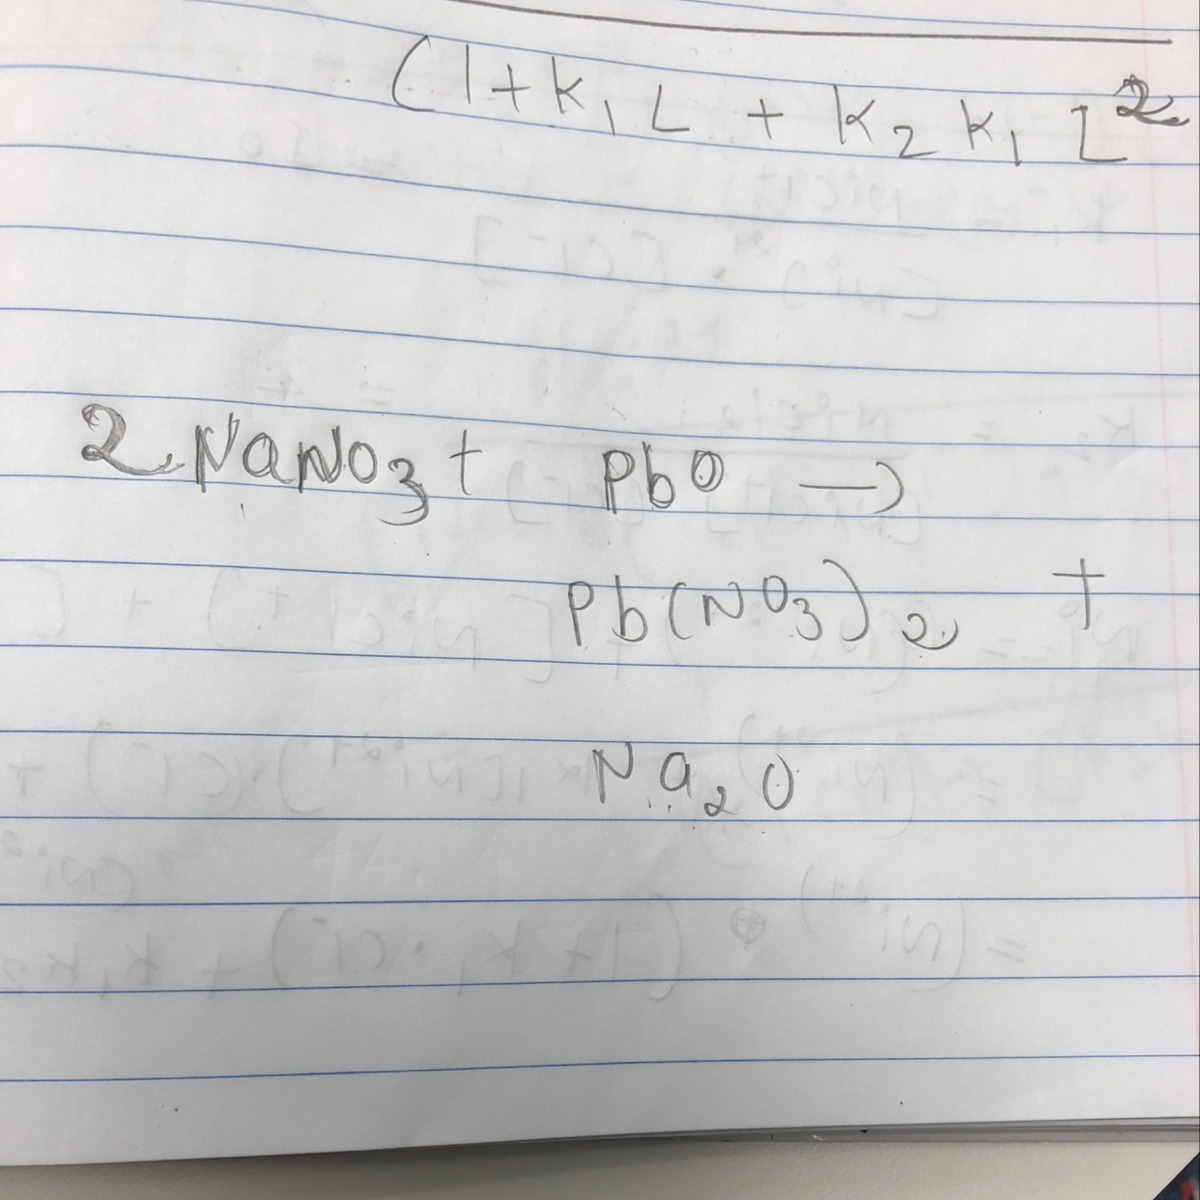 (1+K₁L + K₂K₁L²
2NaNO₃ + PbO →
Pb(NO₃)₂ +
Na₂O